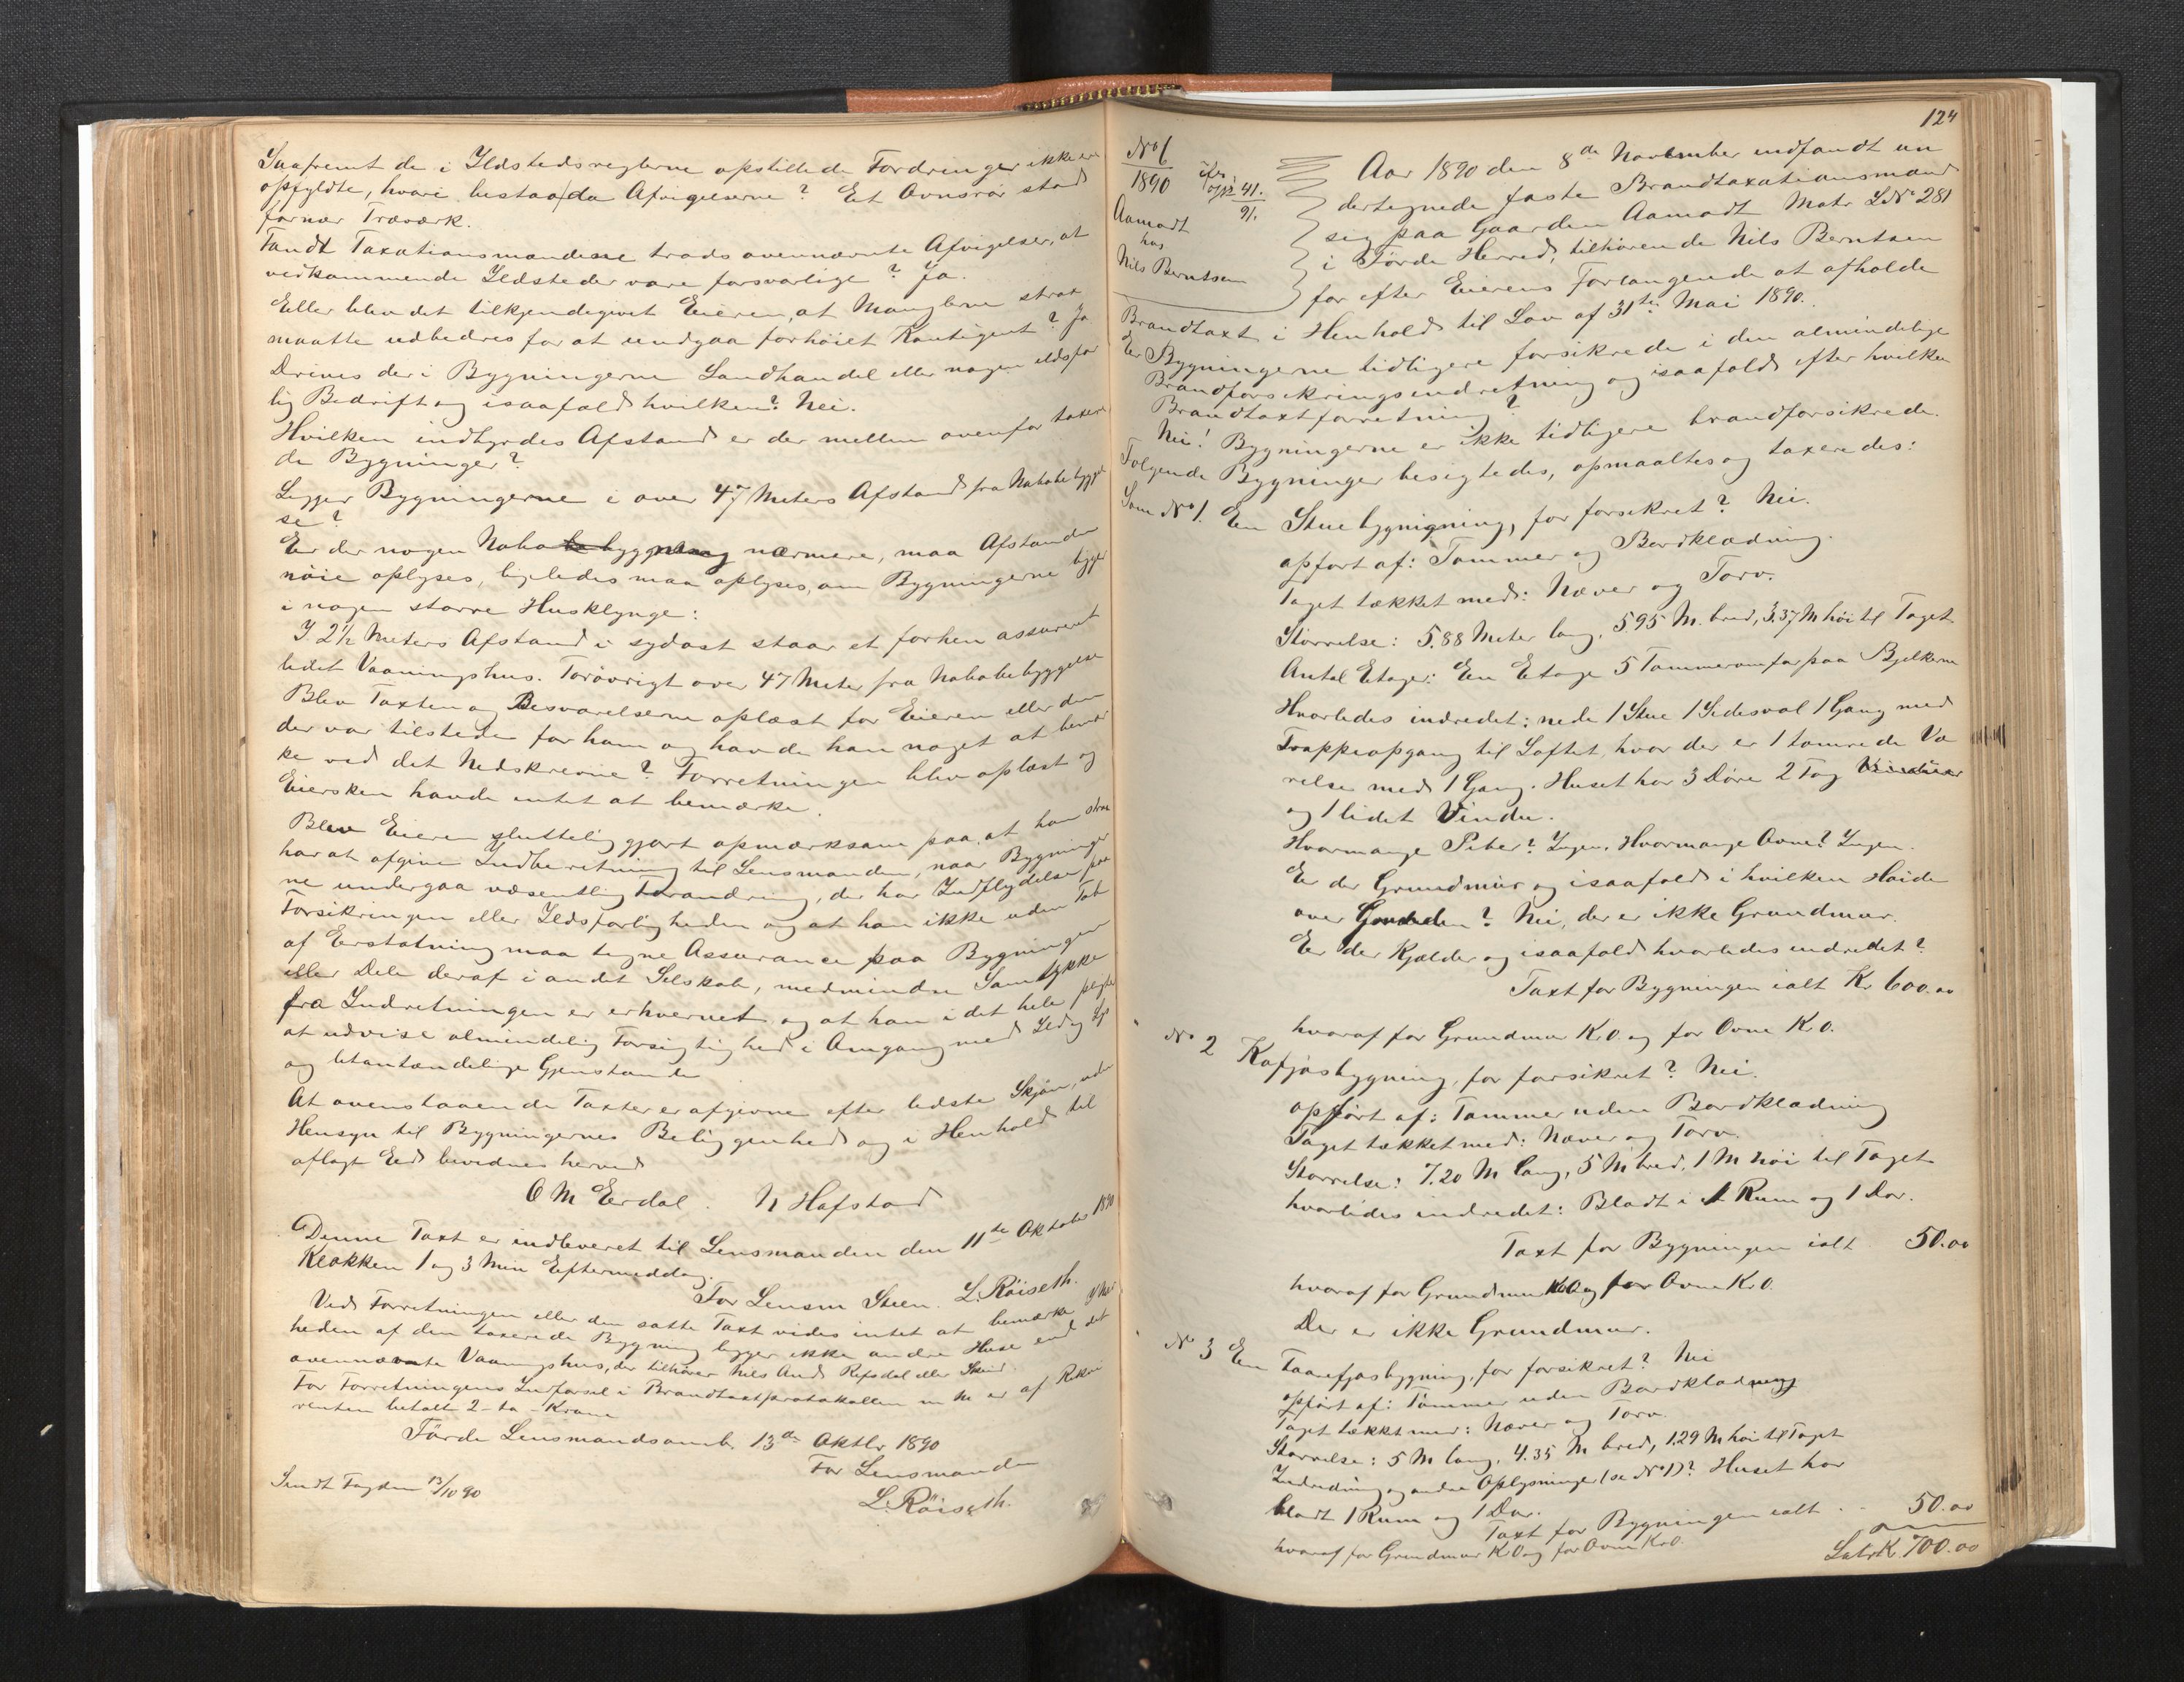 Saafremt de i Ildstedsreglerne opstillede Fordringer ikke ere
opfyldte, hvori bestaa da Afvigelserne? Et Ovnsrör stod
fornær Træværk.
Fandt Taxationsmændene trods ovennævnte Afvigelser, at
vedkommende Ildsteder vare forsvarlige? Ja.
Eller blev det tilkjendegivet Eieren, at Manglerne strax
maatte udbedres for at undgaa forhöiet Kontigent? Ja
Drives der i Bygningerne Landhandel eller nogen ildsfar
lig Bedrift og isaafald hvilken? Nei.
Hvilken indbyrdes Afstand er der mellem ovenfor taxere
de Bygninger?
Ligger Bygningerne i over 47 Meters Afstand fra Nabobebyggel
se?
Er der nogen Nabobebyggning nærmere, maa Afstanden
nöie oplyses, ligeledes maa oplyses, om Bygningerne ligger
i nogen större Husklynge:
I 2½ Meters Afstand i sydost staar et forhen assureret
lidet Vaaningshus. Forövrigt over 47 Meter fra Nabobebyggelse
Blev Taxten og Besvarelserne oplæst for Eieren eller den
der var tilstede for ham og havde han noget at bemær
ke ved det Nedskrevne? Forretningen blev oplæst og
Eiersken havde intet at bemærke.
Blev Eieren sluttelig gjort opmærksom paa, at han strax
har at afgive Indberetning til Lensmanden, naar Bygninger
ne undergaa væsentlig Forandring, der har Indflydelse paa
Forsikringen eller Ildsfarligheden og at han ikke uden Tab
af Erstatning maa tegne Assurance paa Bygningen
eller Dele deraf i andet Selskab, medmindre Samtykke
fra Indretningen er erhvervet og at han i det hele pligter
at udvise almindelig Forsigtighed i Omgang med Ild og Lys
og letantændelige Gjenstande
At ovenstaaende Taxter er afgivne efter bedste Skjön, uden
Hensyn til Bygningernes Beliggenhed og i Henhold til
aflagt Eed bevidnes herved
O M Erdal. N Hafstad
Denne Taxt er indleveret til Lensmanden den 11te Oktober 1890
Klokken 1 og 3 Min Eftermiddag.
For Lensm Steen. L. Röiseth.
Ved Forretningen eller den satte Taxt vides intet at bemærke
heden af den taxerede Bygning ligger ikke andre Huse end det
ovennævnte Vaaningshus, der tilhörer Nils And. Refsdal eller Skei
For Forretningens Indförsel i Brandtaxtprotokollen m M er af Rekvi
renten betalt 2 - to - Kroner
Förde Lensmandsomb. 13de Oktbr 1890
For Lensmanden
L. Röiseth.
Sendt Fogden 13/10 90
124
No 6
1890
41.
91.
Aamodt
hos
Nils Berntsen
Aar 1890 den 8de November indfandt un
dertegnede faste Brandtaxationsmænd
sig paa Gaarden Aamodt Matr LNo 281
i Förde Herred, tilhörende Nils Berntsen
for efter Eierens Forlangende at afholde
Brandtaxt i Henhold til Lov af 31te Mai 1890.
Er Bygningerne tidligere forsikrede i den almindelige
Brandforsikringsindretning og isaafald efter hvilken
Brandtaxtforretning?
Nei! Bygningerne er ikke tidligere brandforsikrede.
Fölgende Bygninger besigtedes, opmaaltes og taxeredes:
Som No 1. En Stuebygnigning, för forsikret? Nei.
opfört af: Tömmer og Bordklædning.
Taget tækket med: Næver og Torv.
Störrelse: 5.88 Meter lang, 5.95 M. bred, 3.37 M höi til Taget
Antal Etager: En Etage 5 Tömmeromfar paa Bjelkerne
Hvorledes indredet: nede 1 Stue 1 Sidesval 1 Gang med
Trappeopgang til Loftet, hvor der er 1 tömrede Væ
relse med 1 Gang. Huset har 3 Döre 2 Fag Vinduer
og 1 lidet Vindu.
Hvormange Piber? Ingen. Hvormange Ovne? Ingen.
Er der Grundmur og isaafald i hvilken Höide
over Grunden? Nei, der er ikke Grundmur.
Er der Kjælder og isaafald hvorledes indredet?
Taxt for Bygningen ialt Kr 600.00
hvoraf for Grundmur K. 0. og for Ovne K. 0.
No 2 Kofjösbygning, för forsikret? Nei.
opfört af: Tömmer uden Bordklædning
Taget tækket med: Næver og Torv.
Störrelse: 7.20 M lang, 5 M bred, 1 M höi til Taget
hvorledes indredet: Blodt i et Rum og 1 Dör.
Taxt for Bygningen ialt 50.00
hvoraf for Grundmur K 0 og for Ovne K. 0.
Der er ikke Grundmur.
No 3 En Faarefjösbygning, för forsikret? Nei
opfört af: Tömmer uden Bordklædning
Taget tækket med: Næver og Torv.
Störrelse: 5 M lang, 4.35 M bred, 1.29 M höi til Taget
Indredning og andre Oplysninger (se No 1)? Huset har
blodt 1 Rum og 1 Dör.
Taxt for Bygningen ialt . - 50.00
hvoraf for Grundmur K 0 og for Ovne K 0.
Latr K. 700.00